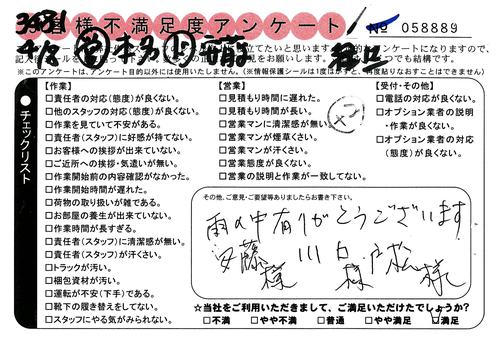 お客様不満足度アンケート
№ 058889
※このアンケートは、アンケート目的以外には使用いたしません。(※情報保護シールは1度はがすと、再度貼りなおすことはできません)
チェックリスト
【作業】
□責任者の対応(態度)が良くない。
□他のスタッフの対応(態度)が良くない。
□作業を見ていて不安がある。
□責任者(スタッフ)に好感が持てない。
□お客様への挨拶が出来ていない。
□ご近所への挨拶・気遣いが無い。
□作業開始前の内容確認がなかった。
□作業開始時間が遅れた。
□荷物の取り扱いが雑である。
□お部屋の養生が出来ていない。
□作業時間が長すぎる。
□責任者(スタッフ)に清潔感が無い。
□責任者(スタッフ)が汗くさい。
□トラックが汚い。
□梱包資材が汚い。
□運転が不安(下手)である。
□靴下の履き替えをしてない。
□スタッフにやる気がみられない。
【営業】
□見積もり時間に遅れた。
□見積もり時間が長い。
□営業マンに清潔感が無い。
□営業マンが煙草くさい。
□営業マンが汗くさい。
□営業態度が良くない。
□営業の説明と作業が一致してない。
×2
【受付・その他】
□電話の対応が良くない。
□オプション業者の説明・作業が良くない。
□オプション業者の対応(態度)が良くない。
その他、ご意見・ご要望等ありましたらお書き下さい。
雨の中有りがとうございます
安藤様 川口様 戸松様
☆当社をご利用いただきまして、ご満足いただけたでしょうか?
□不満 □やや不満 □普通 □やや満足 □満足